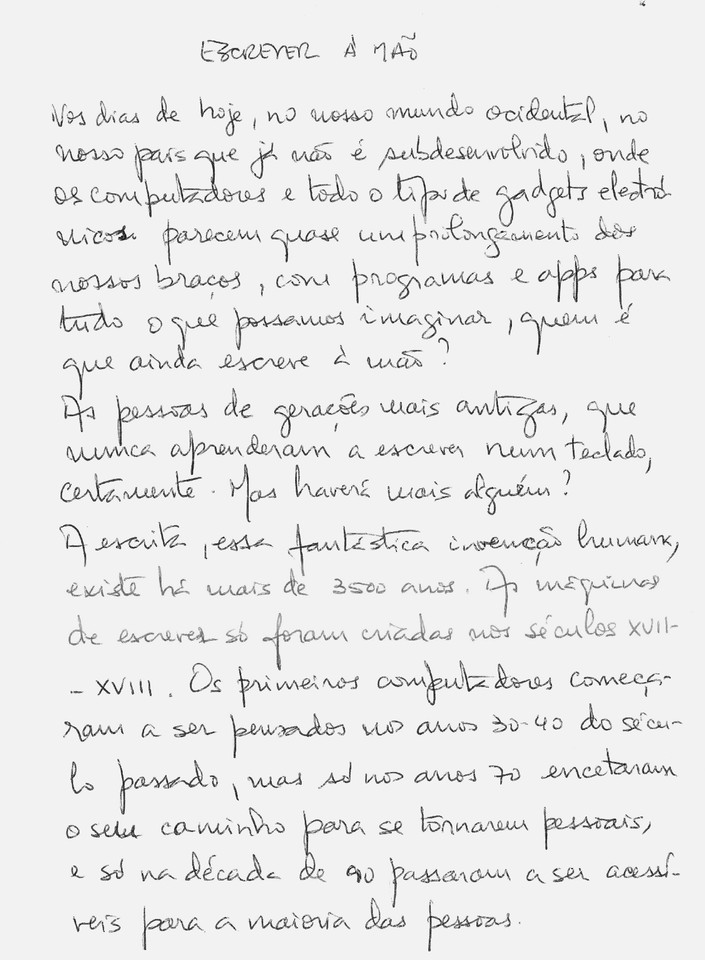 ESCREVER À MÃO
Nos dias de hoje, no nosso mundo ocidental, no
nosso país que já não é subdesenvolvido, onde
os computadores e todo o tipo de gadgets electró-
nicos parecem quase um prolongamento dos
nossos braços, com programas e apps para
tudo o que possamos imaginar, quem é
que ainda escreve à mão?
As pessoas de gerações mais antigas, que
nunca aprenderam a escrever num teclado,
certamente. Mas haverá mais alguém?
A escrita, essa fantástica invenção humana,
existe há mais de 3500 anos. As máquinas
de escrever só foram criadas nos séculos XVII-
- XVIII. Os primeiros computadores começa-
ram a ser pensados nos anos 30-40 do sécu-
lo passado, mas só nos anos 70 encetaram
o seu caminho para se tornarem pessoais,
e só na década de 90 passaram a ser acessí-
veis para a maioria das pessoas.